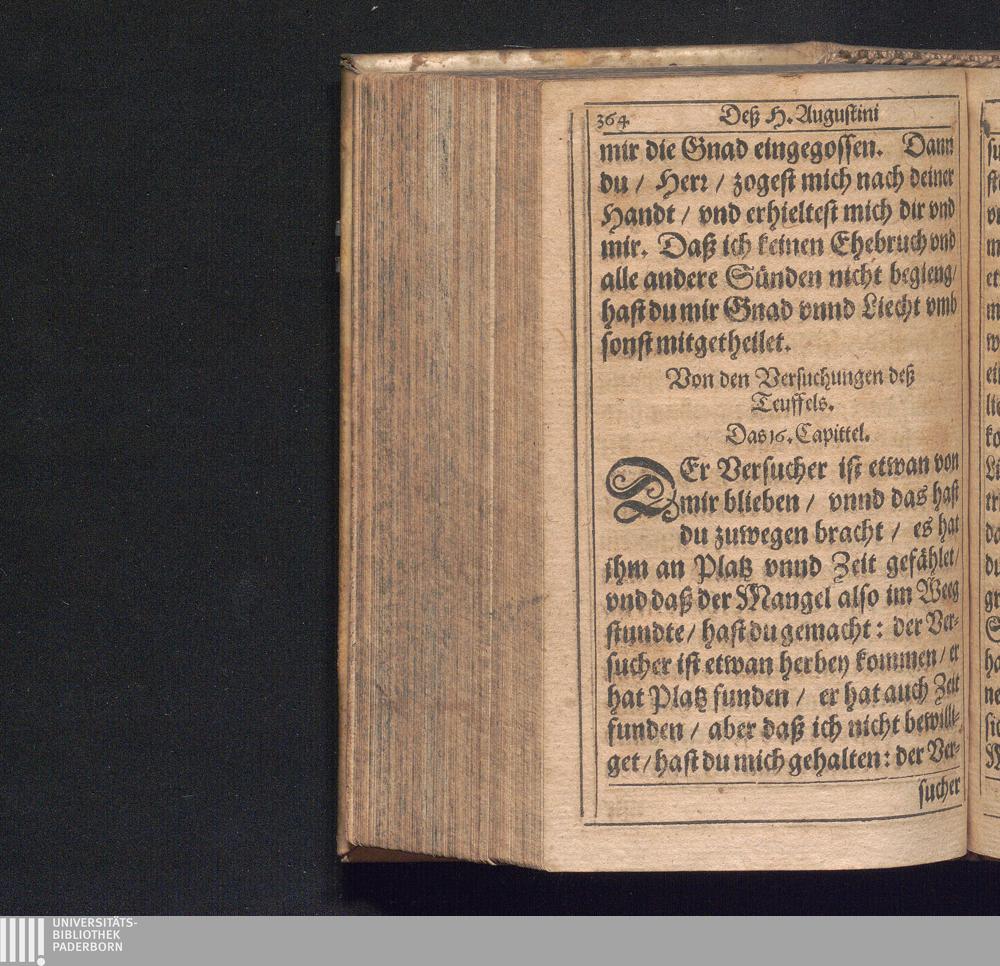 364 Deß H. Augustini
mir die Gnad eingegossen. Dann
du / Herr / zogest mich nach deiner
Handt / vnd erhieltest mich dir vnd
mir. Daß ich keinen Ehebruch vnd
alle andere Sünden nicht begieng /
hast du mir Gnad vnnd Liecht vmb
sonst mitgetheilet.
Von den Versuchungen deß
Teuffels.
Das 16. Capittel.
DEr Versucher ist etwan von
mir blieben / vnnd das hast
du zuwegen bracht / es hat
ihm an Platz vnnd Zeit gefählet /
vnd daß der Mangel also im Weeg
stundte / hast du gemacht : der Ver-
sucher ist etwan herbey kommen / er
hat Platz funden / er hat auch Zeit
funden / aber daß ich nicht bewilli-
get / hast du mich gehalten : der Ver-
sucher
UNIVERSITÄTS-
BIBLIOTHEK
PADERBORN